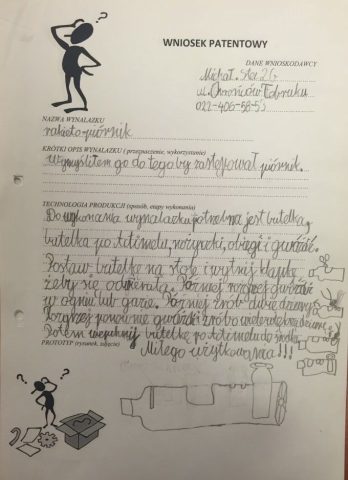 WNIOSEK PATENTOWY
DANE WNIOSKODAWCY
Michał Sta 2G
ul. Obrońców Tobruku
022-406-58-55
NAZWA WYNALAZKU
rakieto-piórnik
KRÓTKI OPIS WYNALAZKU ( przeznaczenie, wykorzystanie)
Wymyśliłem go do tego by zastępował piórnik.
TECHNOLOGIA PRODUKCJI (sposób, etapy wykonania)
Do wykonania wynalazku potrzebna jest butelka,
butelka po Actimelu, nożyczki, obcęgi i gwóźdź.
Postaw butelkę na stole i wytnij klapkę
żeby się odwierała. Później rozgrzej gwóźdź
w ogniu lub gazie. Później zrób duże
ponownie gwóźdź i zrób
Potem butelkę po Actimelu do środka.
PROTOTYP (rysunek, zdjęcie)
Miłego użytkowania!!!